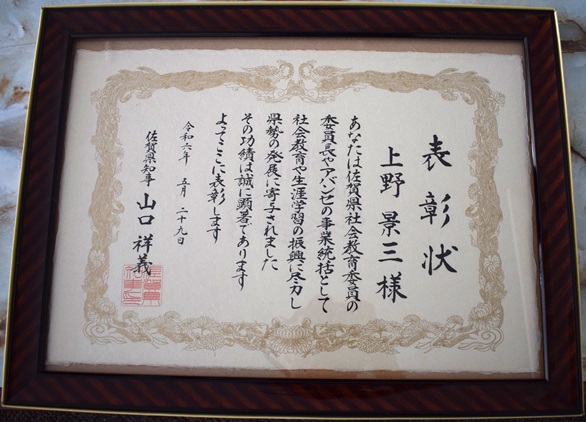 表彰状
上野景三様
あなたは佐賀県社会教育委員の
委員長やアバンセの事業統括として
社会教育や生涯学習の振興に尽力し
県勢の発展に寄与されました
その功績は誠に顕著であります
よってここに表彰します
令和六年 五月 二十九日
佐賀県知事 山口祥義